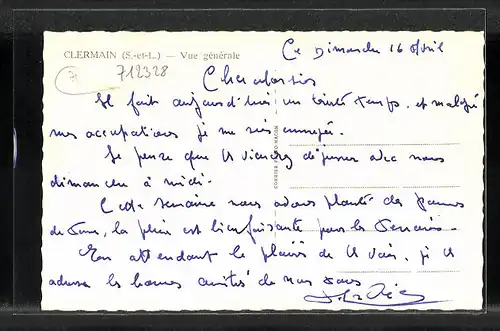 CLERMAIN (S.-et-L.) — Vue générale
Ce Dimanche 16 Avril
71
712328
Il fait aujourd'hui un triste temps, et malgré
mes occupations je me suis ennuyée.
Je pense que V viendrez déjeuner avec nous
dimanche à midi.
Cette semaine nous avons planté des pommes
de terre, la pluie est bienfaisante pour les semis.
En attendant le plaisir de V voir, je V
adresse les bonnes amitiés de nous tous